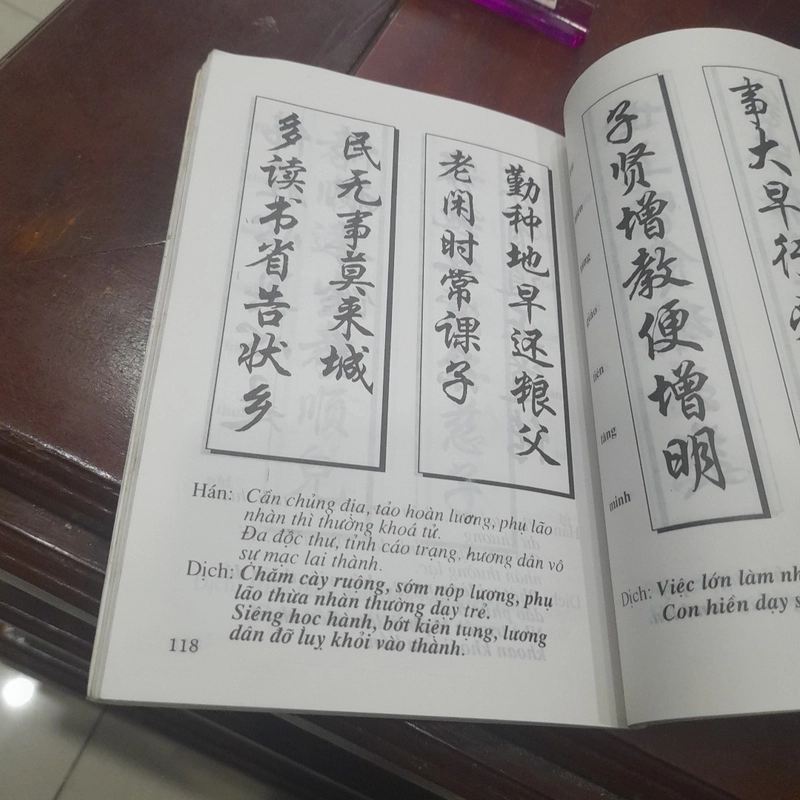 勤种地早还粮父
老闲时常课子
多读书省告状乡
民无事莫来城
Hán: Cần chủng địa, tảo hoàn lương, phụ lão
nhàn thì thường khoá tử.
Đa độc thư, tỉnh cáo trạng, hương dân vô
sự mạc lai thành.
Dịch: Chăm cày ruộng, sớm nộp lương, phụ
lão thừa nhàn thường dạy trẻ.
Siêng học hành, bớt kiện tụng, lương
dân đỡ luỵ khỏi vào thành.
118
事大早行
子贤增教便增明
giáo
tiện
tăng
minh
Dịch: Việc lớn làm
Con hiền dạy